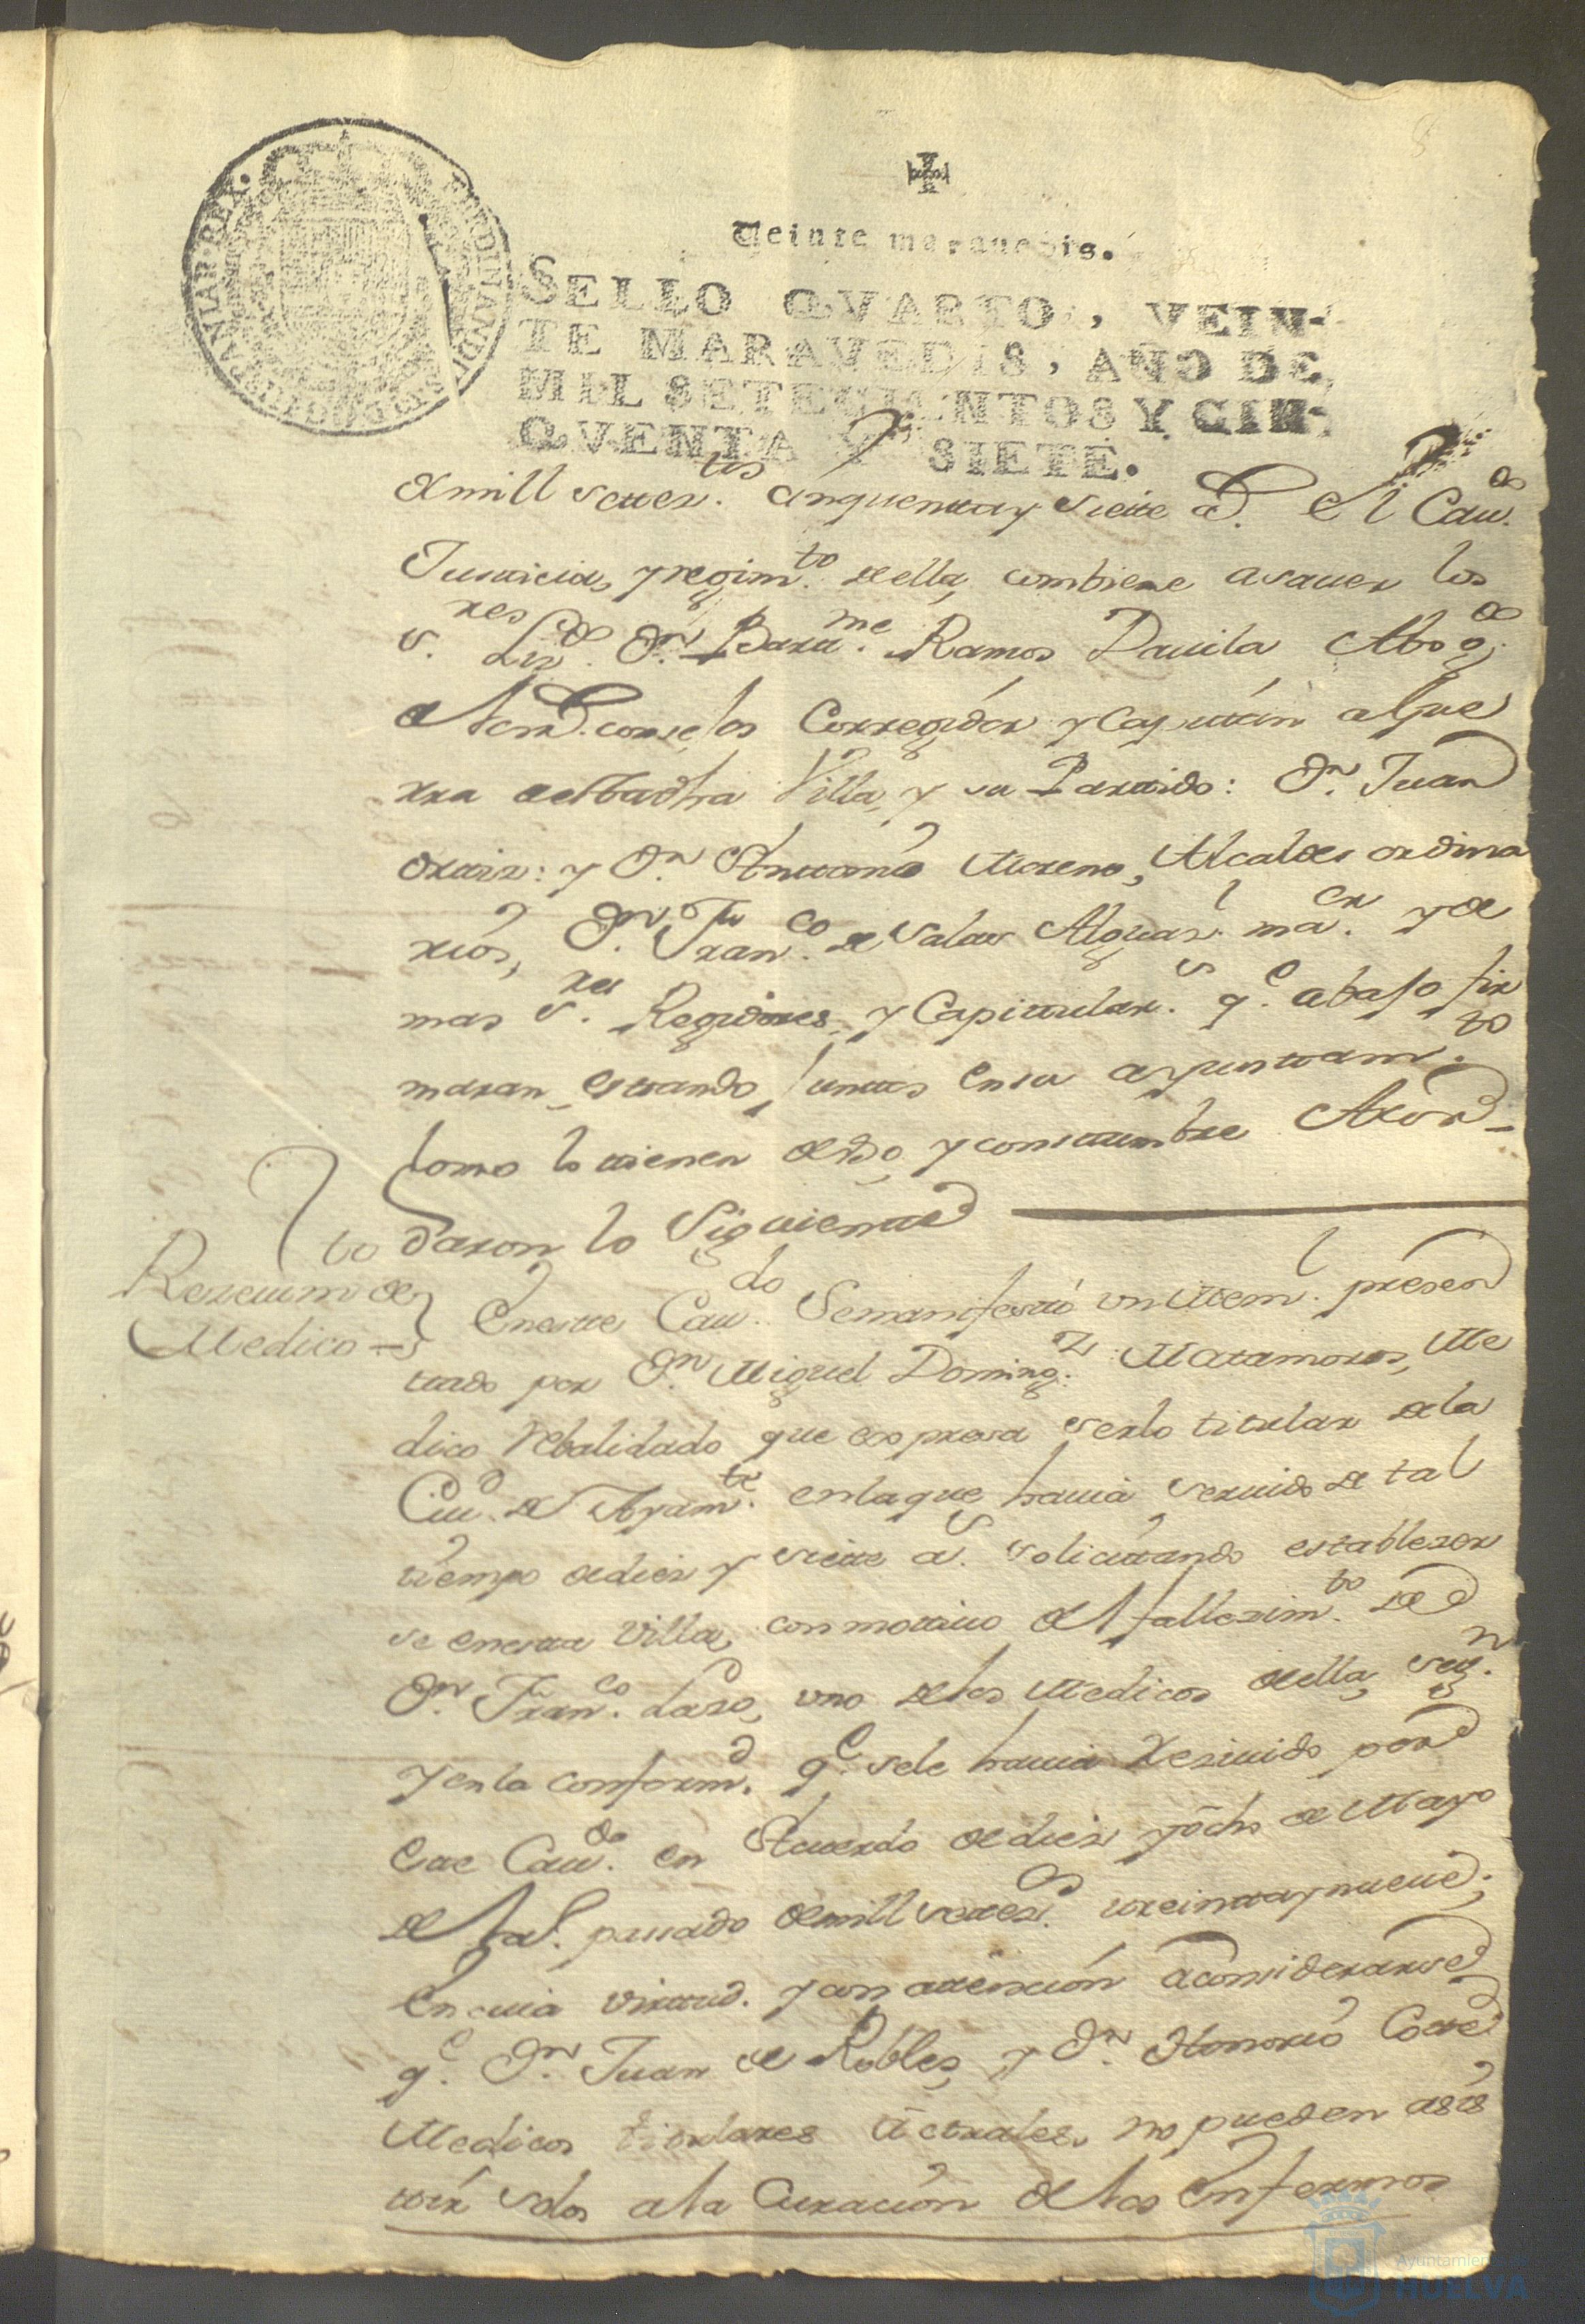 Veinte maravedis.
SELLO QVARTO, VEIN-
TE MARAVEDIS, AÑO DE
MIL SETECIENTOS Y CIN-
QVENTA Y SIETE.
de mill setez.tos cinquenta y siete a.s El Cav.do
Justicia, y regim.to de ella, combiene a saver los
s.res Liz.do D.n Bartt.me Ramos Davila Abog.do
de los R.s consejos Corregidor y Capittán a Gue
rra de esta dha Villa, y su Parttido: D.n Juan
Orttiz: y D.n Anttonio Moreno, Alcaldes ordina
rios, D.n Fran.co de Salas Alguaz.l ma.or y de
mas s.res Regidores, y Capittular.s q.e abajo fir
maran, esttando junttos en su ayunttam.to
como lo ttienen de uso, y costtumbre Acor-
daron lo Siguientte
Rezevim.to de
Medico
En estte Cav.do Se manifesttó un Mem.l presen
ttado por D.n Miguel Doming.z Matamoros, Me
dico Rebalidado que expresa serlo titular de la
Ciu.d de Ayam.te en la que havia servido de tal
ttiempo de diez y siette a.s solicittando establezer
se en estta Villa, con mottivo del fallezim.to de
D.n Fran.co Lazo, uno de los Medicos de ella, seg.n
y en la conform.d q.e se le havia Rezivido por
estte Cav.do en Acuerdo de diez y ocho de Mayo
del a.o passado de mill settez.s ttreintta y nueve;
En cuia virttud. y con attención a considerarse
q.e D.n Juan de Robles, y D.n Honorio Cotte
Medicos titulares Actuales, no pueden asis
ttir solos a la Curación de los Enfermos
Ayuntamiento de
HUELVA